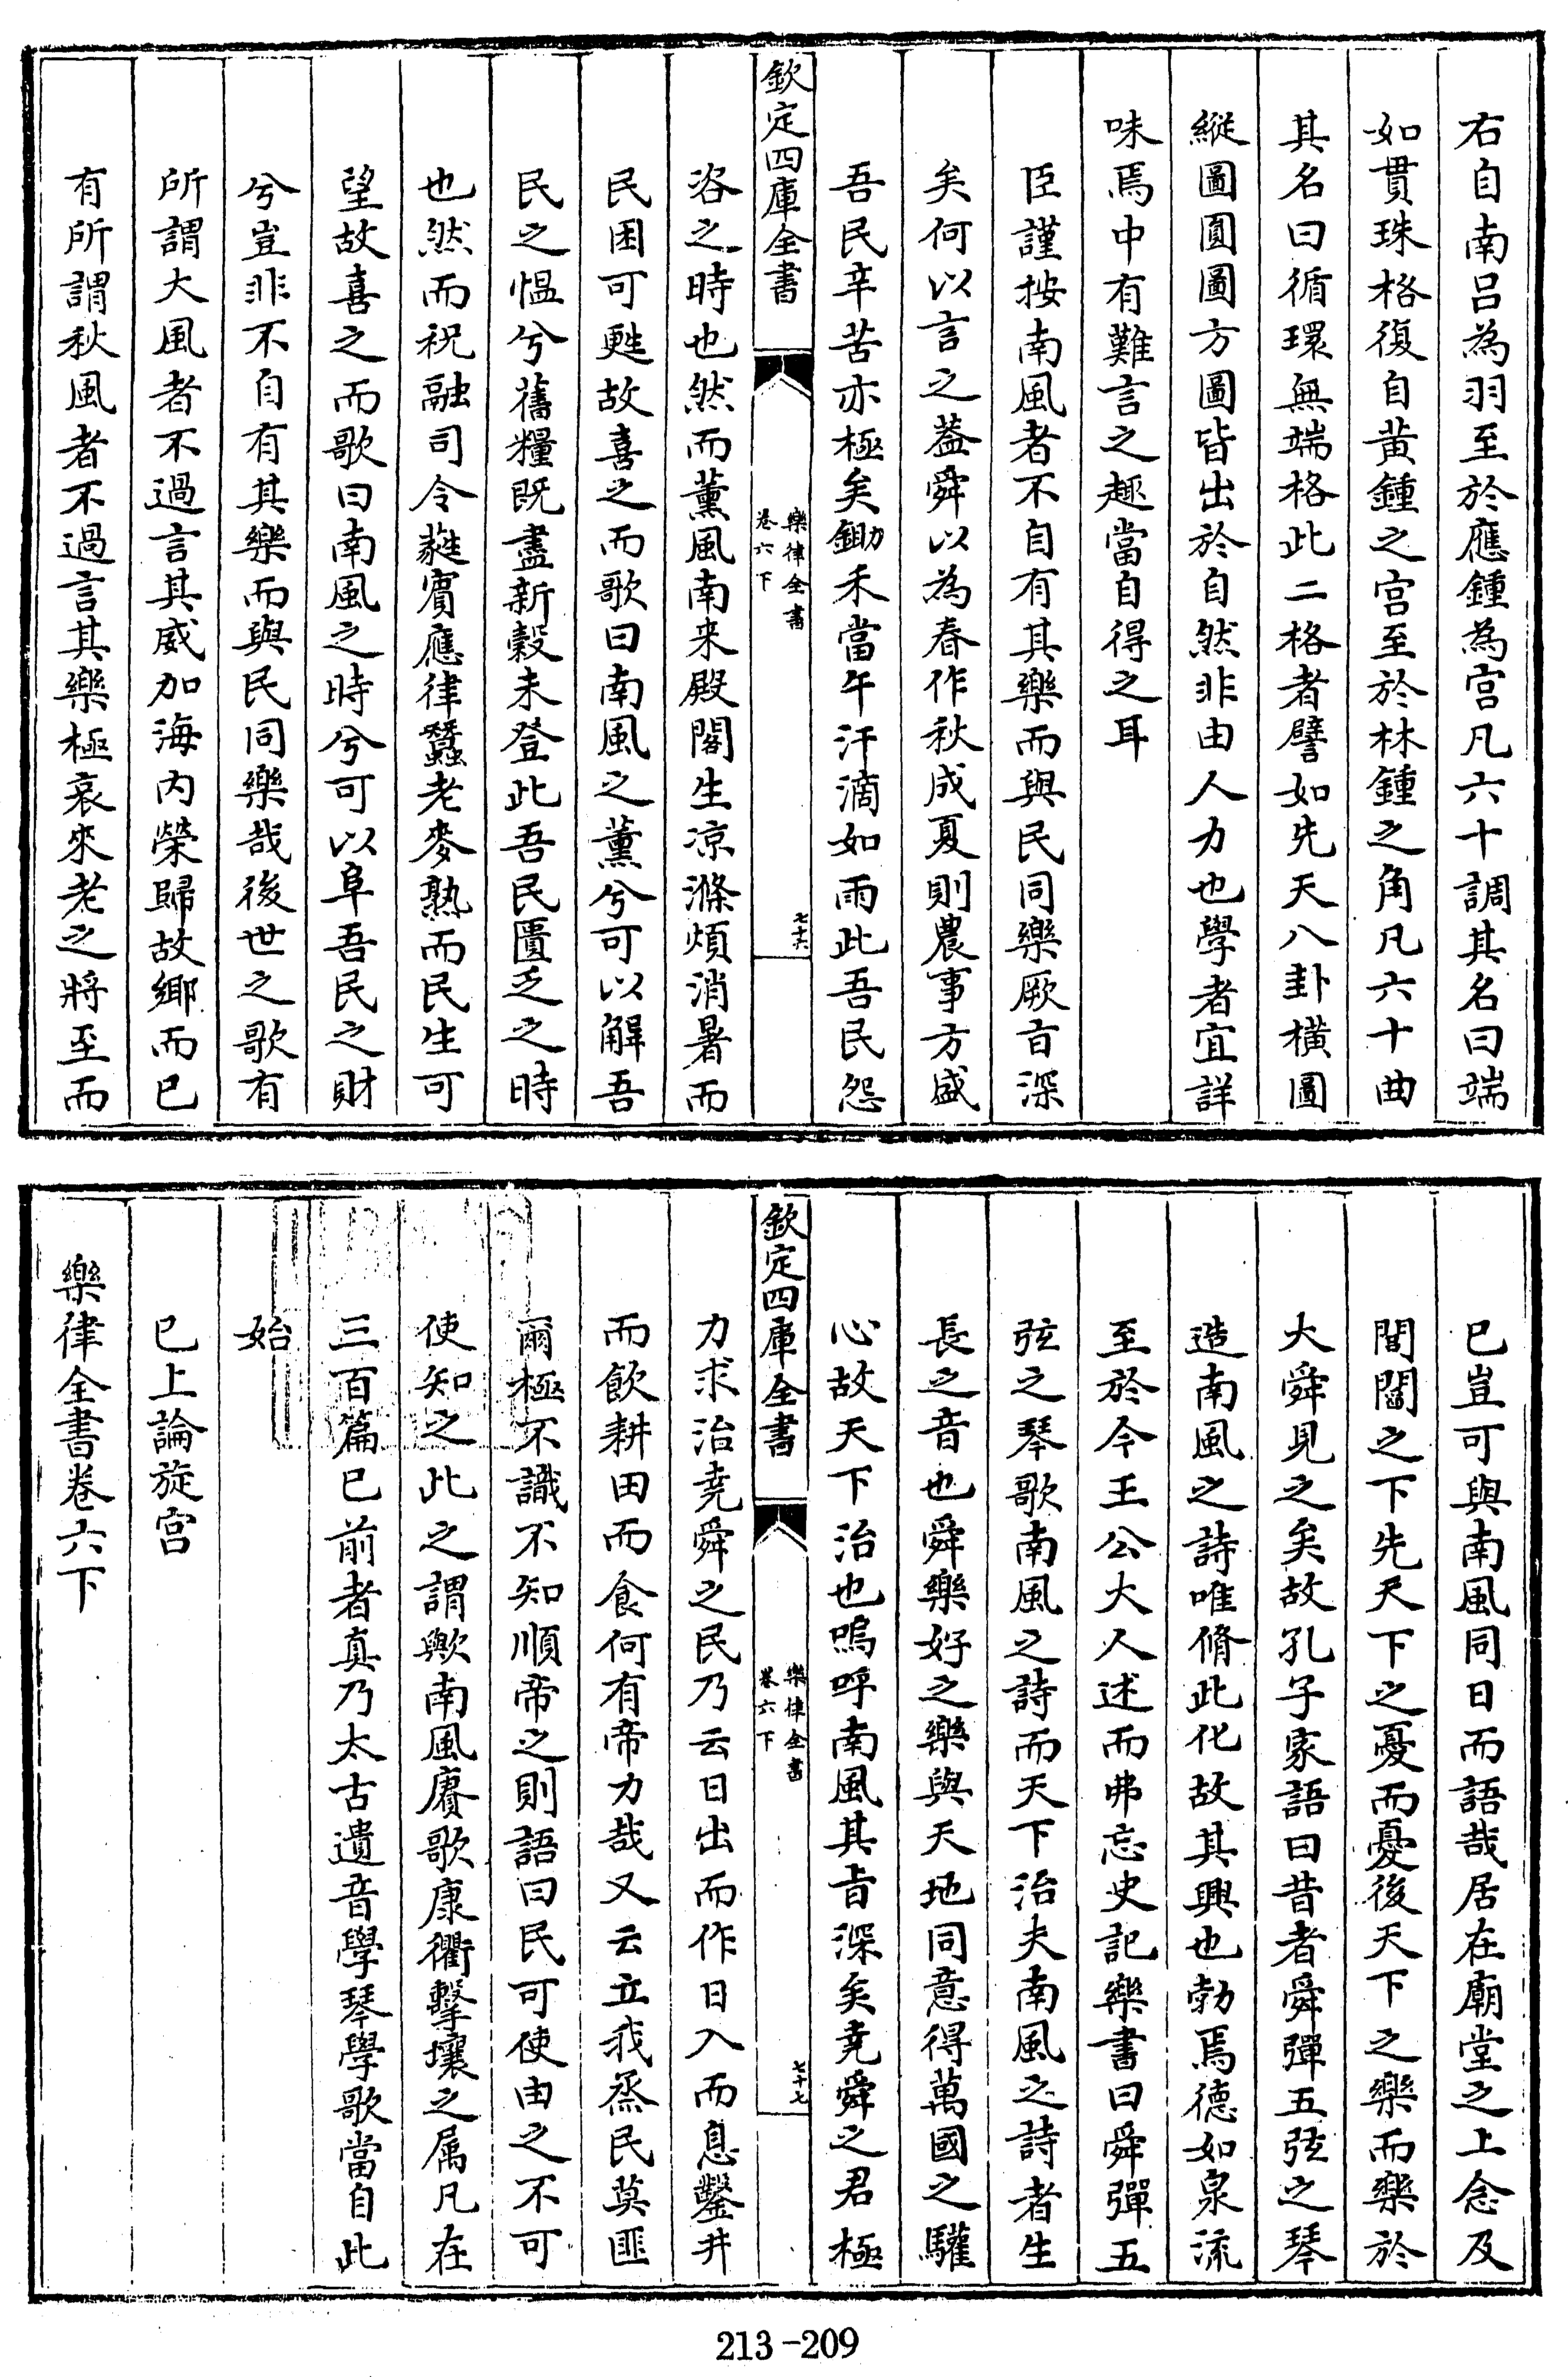 右自南呂為羽至於應鍾為宮凡六十調其名曰端
如貫珠格復自黃鍾之宮至於林鍾之角凡六十曲
其名曰循環無端格此二格者譬如先天八卦橫圖
縱圖圓圖方圖皆出於自然非由人力也學者宜詳
味焉中有難言之趣當自得之耳
臣謹按南風者不自有其樂而與民同樂厥㫖深
矣何以言之葢舜以為春作秋成夏則農事方盛
吾民辛苦亦極矣鋤禾當午汗滴如雨此吾民怨
欽定四庫全書
樂律全書
卷六下
七十六
咨之時也然而薰風南来殿閣生凉滌煩消暑而
民困可甦故喜之而歌曰南風之薰兮可以解吾
民之愠兮舊糧既盡新穀未登此吾民匱乏之時
也然而祝融司令蕤賓應律蠶老麥熟而民生可
望故喜之而歌曰南風之時兮可以阜吾民之財
兮豈非不自有其樂而與民同樂哉後世之歌有
所謂大風者不過言其威加海内榮歸故鄉而已
有所謂秋風者不過言其樂極哀來老之將至而
已豈可與南風同日而語哉居在廟堂之上念及
閭閻之下先天下之憂而憂後天下之樂而樂於
大舜見之矣故孔子家語曰昔者舜彈五弦之琴
造南風之詩唯脩此化故其興也勃焉德如泉流
至於今王公大人述而弗忘史記樂書曰舜彈五
弦之琴歌南風之詩而天下治夫南風之詩者生
長之音也舜樂好之樂與天地同意得萬國之驩
心故天下治也嗚呼南風其㫖深矣堯舜之君極
欽定四庫全書
樂律全書
卷六下
七十七
力求治堯舜之民乃云日出而作日入而息鑿井
而飲耕田而食何有帝力哉又云立我烝民莫匪
爾極不識不知順帝之則語曰民可使由之不可
使知之此之謂歟南風賡歌康衢擊壤之属凡在
三百篇已前者真乃太古遺音學琴學歌當自此
始
已上論旋宮
樂律全書卷六下
213-209